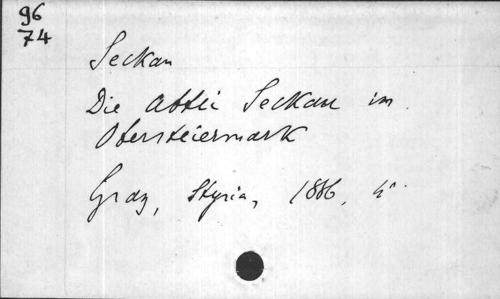 96
74
Seckau
Die Abtei Seckau in
Obersteiermark
Graz, Styria, 1886, 4°.